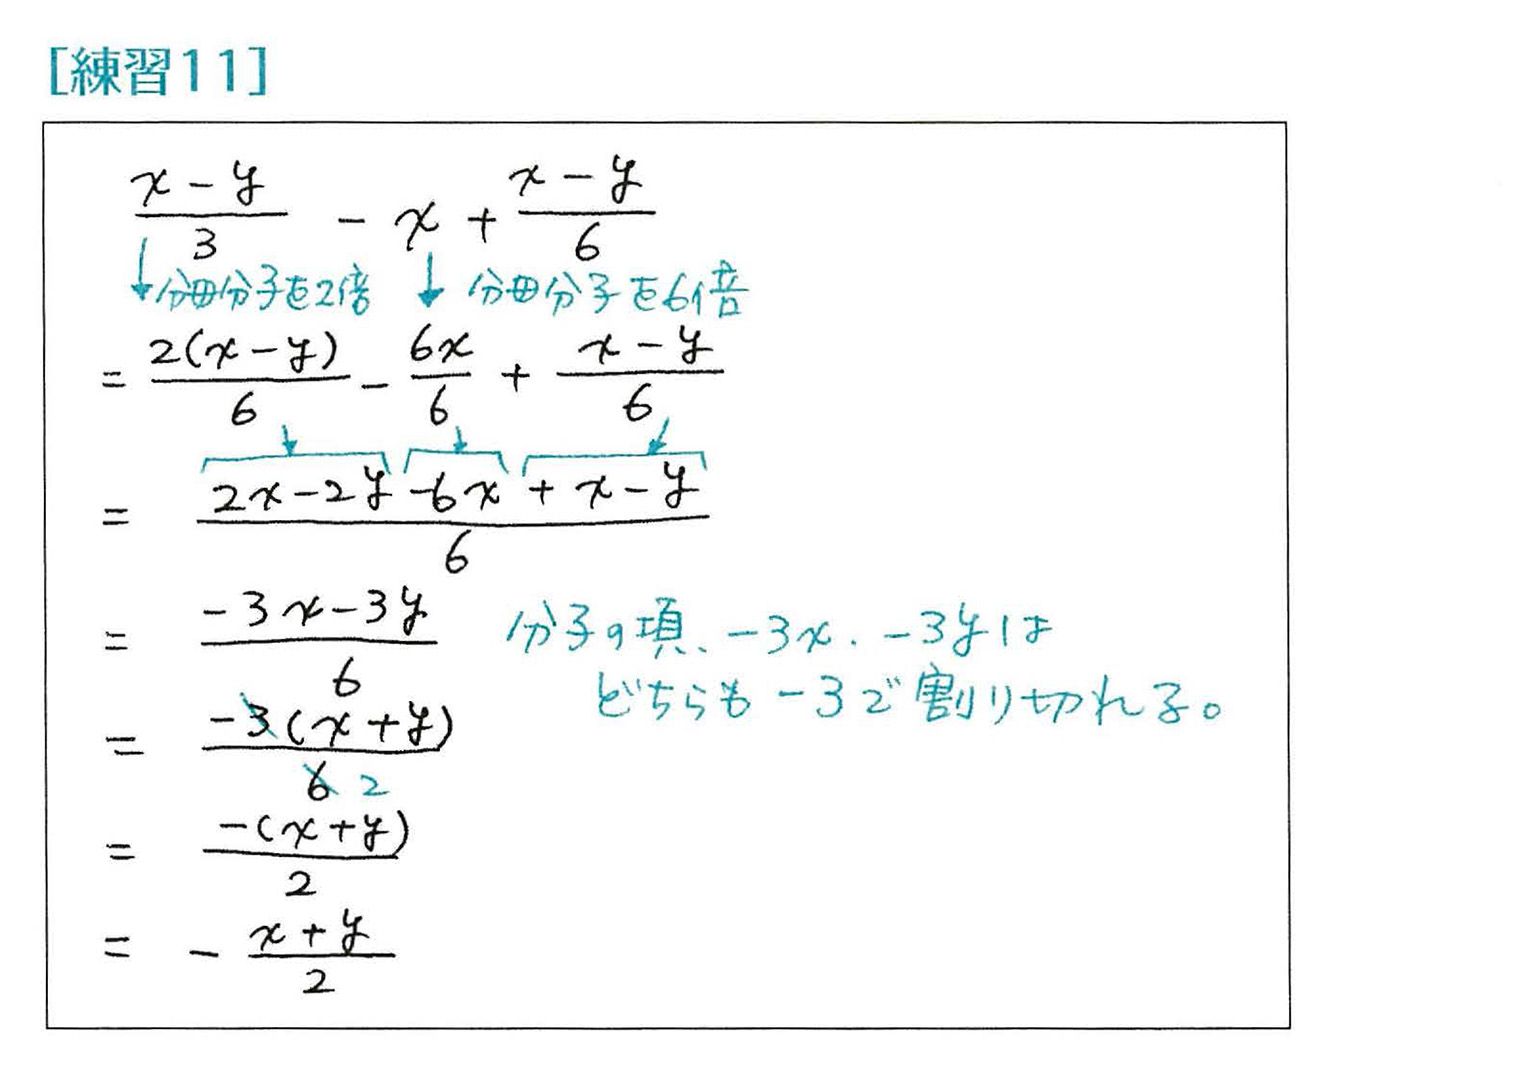 [練習11]
(x-y)/3 - x + (x-y)/6
↓分母分子を2倍 ↓ 分母分子を6倍
= 2(x-y)/6 - 6x/6 + (x-y)/6
= (2x-2y-6x+x-y)/6
= (-3x-3y)/6 分子の項、-3x、-3yは
どちらも-3で割り切れる。
= -3(x+y)/6 2
= -(x+y)/2
= - (x+y)/2